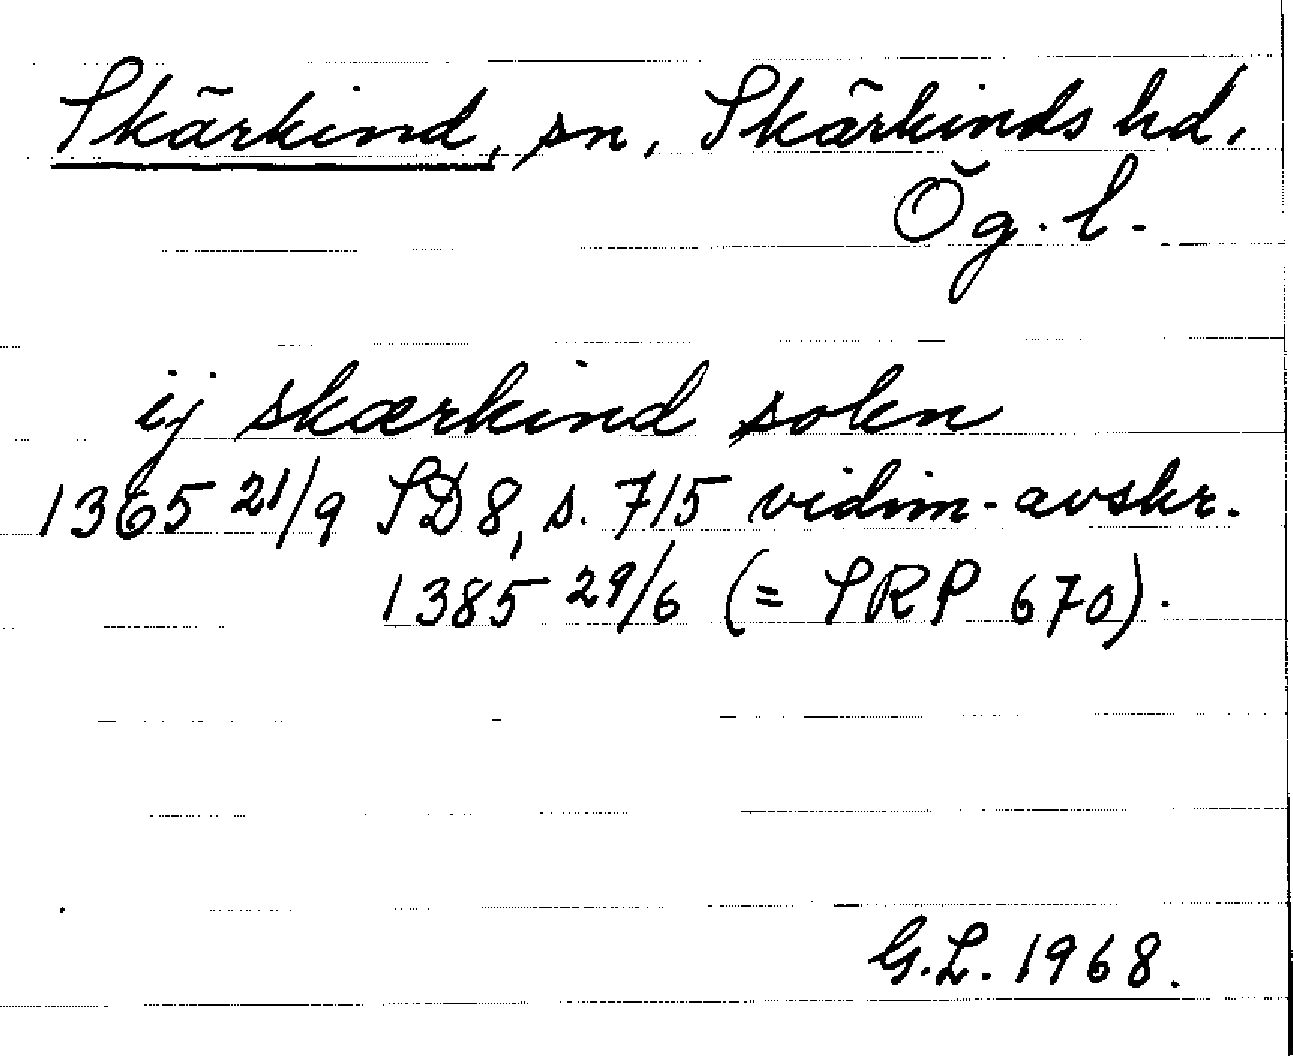 Skärkind, sn, Skärkinds hd,
Ög. l.
ij skærkind sokn
1365 21/9 SD 8, s. 715 vidim-avskr.
1385 29/6 (= SRP 670).
G.L. 1968.